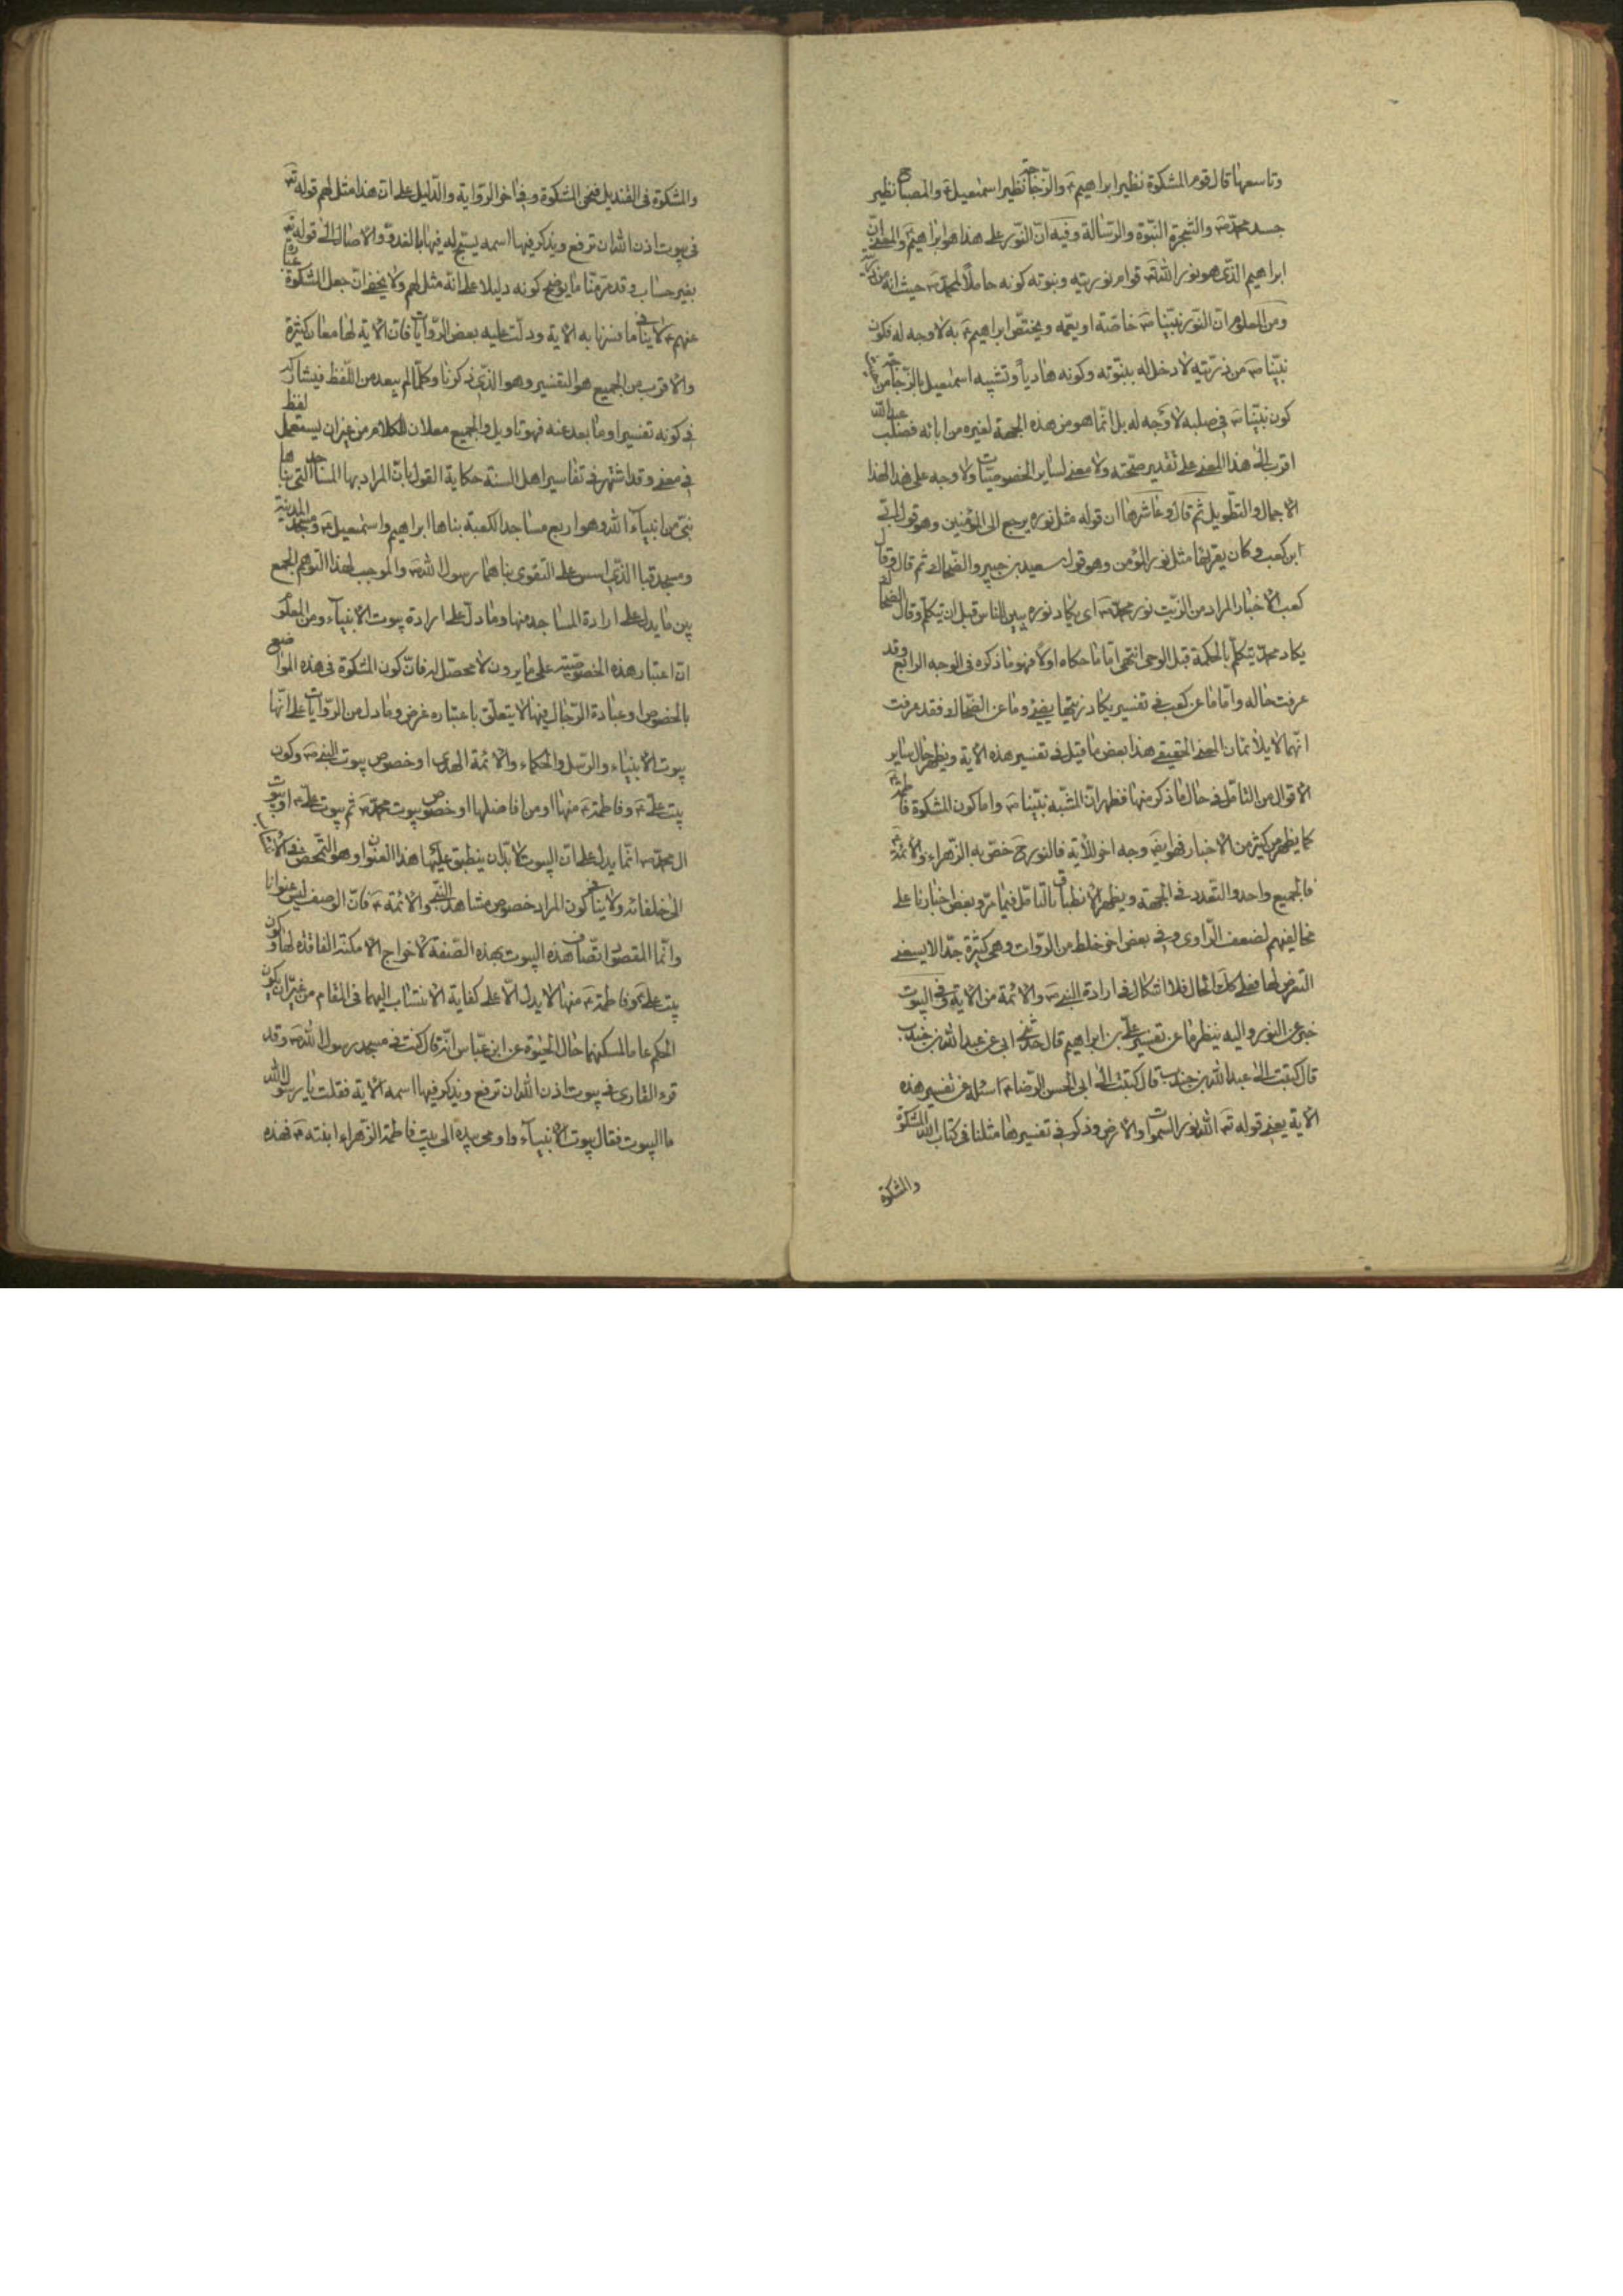 وتاسعها قال قوم المشكوة نظير ابراهيم ع والزّجاجة نظير اسمعيل ع والمصباح نظير
جسد محمّد ص والشجرة النبّوة والرّسالة وفيه انّ النّور على هذا هو ابراهيم ع والمعنى انّ
ابراهيم الذّى هو نور الله تع قوام نوريته ونبوته كونه حاملا لمحمّد ص حيث انه من
ومن المعلوم ان النّور نبيّنا ص خاصّة او يعمّه ويختصّ ابراهيم ع به لا وجه له فكون
نبيّنا ص من ذرّيّته لا دخل له بنبّوته وكونه هادياً وتشبيه اسمعيل بالزّجاجة من
كون نبيّنا ص فى صلبه لا وجه له بل انّما هو من هذه الجهة لغيره من ابائه فصلب عبد الله
اقرب الى هذا المعنى على تقدير صحّته ولا معنى لساير الخصوصيّات ولا وجه على هذا لهذا
الاجمال والتطّويل ثم قال وعاشرها ان قوله مثل نوره يرجع الى المؤمنين وهو قول ابّى
ابن كعب وكان يقرئها مثل نور المؤمن وهو قول سعيد بن جبير والضّحاك ثم قال وقال
كعب الاخبار المراد من الزّيت نور محمّد ص اى يكاد نوره يبين للناس قبل ان يتكلّم وقال الضحاك
يكاد محمّد يتكلّم بالحكمة قبل الوحى انتهى امّا ما حكاه اولا فهو ما ذكره فى الوجه الرابع وقد
عرفت حاله وامّا ما عن كعب فى تفسير يكاد زيتها يضيئ وما عن الضّحاك فقد عرفت
انّهما لا يلائمان المعنى الحقيقى هذا بعض ما قيل فى تفسير هذه الاية ويظهر حال ساير
الاقوال من التامّل فى حال ما ذكر منها فظهر انّ المشّبه نبيّنا ص واما كون المشكوة فاطمة ع
كما يظهر من كثير من الاخبار فهو ايضا وجه اخر للاية فالنور ح خصّ به الزّهراء والائمّة ع
فالجميع واحد والتعّدد فى الجهة ويظهر الانطباق بالتامّل فيما مرّ وبعض اخبارنا على
تخاليفهم لضعف الرّاوى وفى بعض اخر خلط من الرّوات وهى كثيرة جدّا لا يسعنى
التعرض لها فعلى كلّ حال فلا اشكال فى ارادة النبى ص والائمّة من الاية وفى البيوت
خبر عن النور واليه ينظر ما عن تفسير علىّ بن ابراهيم قال حدّثنى ابى عن عبد الله بن جندب
قال كتبت الى عبد الله بن جندب قال كتبت الى ابى الحسن الرّضا ع اسئله عن تفسير هذه
الاية يعنى قوله تع الله نور السّموات والارض وذكر فى تفسيرها مثلنا فى كتاب الله المشكوة
والمشكوة
والمشكوة فى القنديل فنحن المشكوة وفى اخر الرّواية والدّليل على ان هذا مثل لهم قوله تع
فى بيوت اذن الله ان ترفع ويذكر فيها اسمه يسّبح له فيها بالغدوّ والاصال الى قوله تع
بغير حساب وقد مرّ منّا ما يوضح كونه دليلا على انّه مثل لهم ولا يخفى ان جعل المشكوة عبارة
عنهم ع لا ينافى ما فسرنا به الاية ودلّت عليه بعض الرّوايات فان الاية لها معان كثيرة
والاقرب من الجميع هو التفسير وهو الذّى ذكرنا وكلّما لم يبعد من اللّفظ فيشاركه
فى كونه تفسيرا وما بعد عنه فهو تاويل والجميع معلان للكلام من غير ان يستعمل لفظ
فى معنى وقد اشتهر فى تفاسير اهل السنة حكاية القول بانّ المراد بها المساجد التى بناها
نبىّ من انبياء الله وهو اربع مساجد الكعبة بناها ابراهيم واسمعيل ع ومسجد المدينة
ومسجد قبا الذّى اسس على التقوى بناهما رسول الله ص والموجب لهذا التوّهم الجمع
بين ما يدل على ارادة المساجد منها وما دلّ على ارادة بيوت الانبياء ومن المعلوم
انّ اعتبار هذه الخصوصيّة على ما يرون لا محصّل له فانّ كون المشكوة فى هذه المواضع
بالخصوص وعبادة الرّجال فيها لا يتعلّق باعتباره غرض وما دل من الرّوايات على انّها
بيوت الانبياء والرّسل والحكماء والائمة الهدى او خصوص بيوت النبى ص وكون
بيت علىّ ع وفاطمة ع منها او من افاضلها او خصوص بيوت محمّد ص ثم بيوت علىّ ع او بيوت
ال محمّد ص انّما يدل على انّ البيوت لا بدّ ان ينطبق عليها هذا العنوان وهو التمّحض فى الانتساب
الى خلفائه ولا ينافى كون المراد خصوص مشاهد النّبى والائمّة ع فانّ الوصف ليس عنوانا
وانّما المقصود اتّصاف هذه البيوت بهذه الصّفة لاخراج الامكنة الفاقدة لها وكون
بيت علىّ ع وفاطمة ع منها لا يدل الّا على كفاية الانتساب اليهما فى المقام من غير ان يكون
الحكم عاما لمسكنهما حال الحيوة عن ابن عبّاس انّه قال كنت فى مسجد رسول الله ص وقد
قرء القارى فى بيوت اذن الله ان ترفع ويذكر فيها اسمه الاية فقلت يا رسول الله
ما البيوت فقال بيوت الانبياء واومى بيده الى بيت فاطمة الزّهراء ابنته ع فهذه